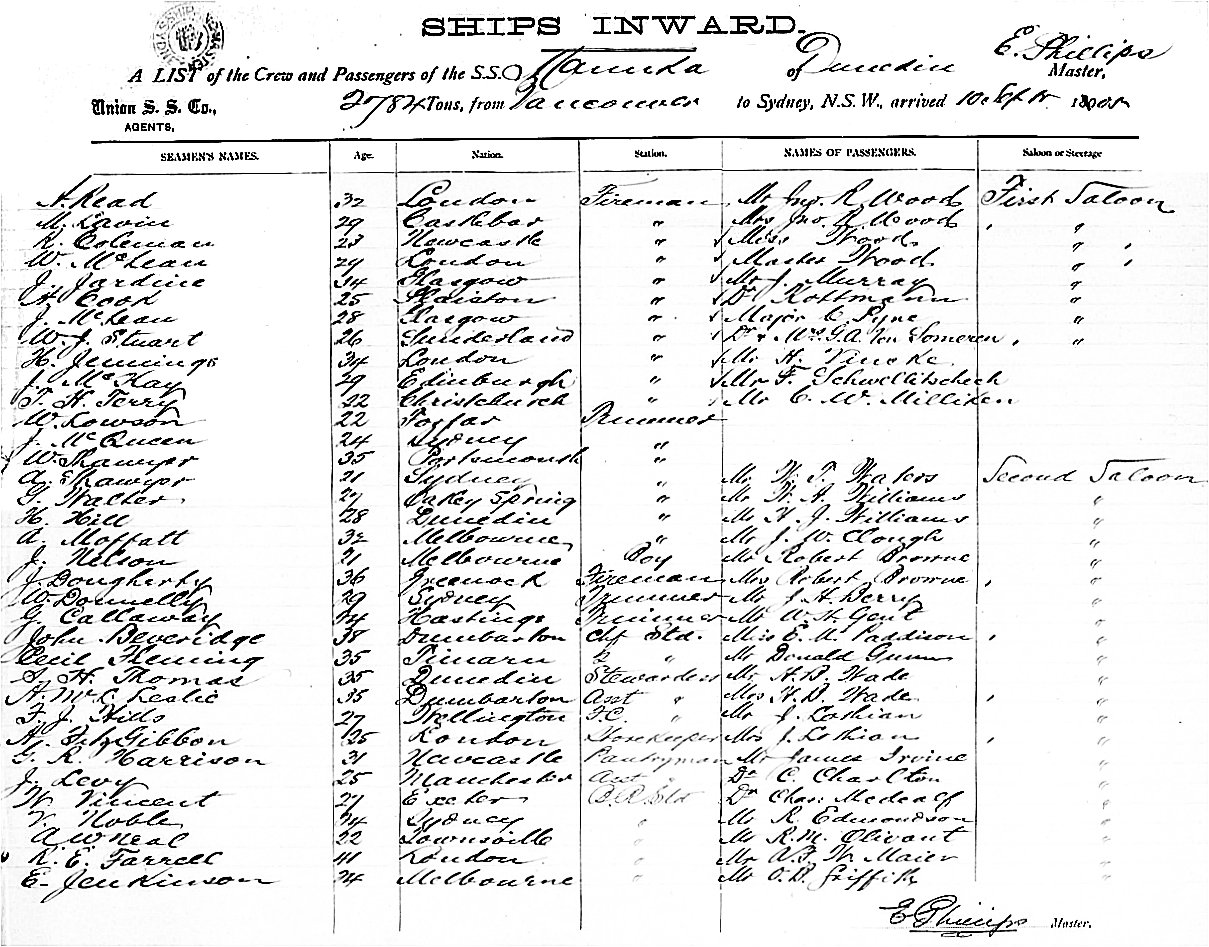 SHIPS INWARD.
A LIST of the Crew and Passengers of the S.S. Manuka of Dunedin E. Phillips Master,
Union S. S. Co., AGENTS, 2784 Tons, from Vancouver to Sydney, N.S.W., arrived 10 Sept 1905
SEAMEN'S NAMES. Age. Nation. Station. NAMES OF PASSENGERS. Saloon or Steerage
A. Read 32 London Fireman Mr Jno. R. Wood First Saloon
M. Lavin 29 Castlebar " Mrs Jno. R. Wood "
R. Coleman 23 Newcastle " Miss Wood "
W. McLean 29 London " Master Wood "
J. Jardine 34 Glasgow " Mr J. Murray "
H. Cook 25 Plaistow " Dr Rottmann "
J. McLean 28 Glasgow " Major C. Pyne "
W. J. Stuart 26 Sunderland " Dr & Mrs G.A. Von Someren "
H. Jennings 34 London " Mr H.
J. McKay 29 Edinburgh " Mr F.
T. H. Terry 22 Christchurch " Mr C. W. Milliken
W. Lowson 22 Forfar Trimmer
J. McQueen 24 Sydney "
W. 35 Portsmouth "
A. 21 Sydney " Mr W. T. Waters Second Saloon
G. Walker 27 Oakey Spring " Mr W. A. Williams "
H. Hill 28 Dunedin " Mr H. J. Williams "
A. Moffatt 32 Melbourne " Mr J. W. Clough "
J. Nelson 21 Melbourne Boy Mr Robert Browne "
J. Dougherty 36 Greenock Fireman Mrs Robert Browne "
W. Donnelly 29 Sydney Trimmer Mr J. H. Berry "
G. Callaway 24 Hastings Trimmer Mr W. H. Gent "
John Beveridge 38 Dumbarton Chf Std. Miss E. M. Paddison "
Cecil Fleming 35 Timaru 2 " Mr Donald Gunn "
S. H. Thomas 35 Dunedin Stewardess Mr H. B. Wade "
A. McC. Leslie 35 Dumbarton Asst " Mrs H. B. Wade "
F. J. Hills 27 Wellington F.C. " Mr J. Lothian "
A. FitzGibbon 25 London Storekeeper Mrs J. Lothian "
G. R. Harrison 31 Newcastle Pantryman Mr James Irvine "
J. Levy 25 Manchester Asst " Dr C. Charlton "
W. Vincent 27 Exeter B.R. Std Dr Chas. Medcalf "
V. Noble 24 Sydney " Mr R. Edmondson "
A. W. Neal 22 Townsville " Mr R. M. Olivant "
R. E. Farrell 41 London " Mr A. F. W. Maier "
E. Jenkinson 24 Melbourne " Mr O. B. Griffith "
E Phillips Master.